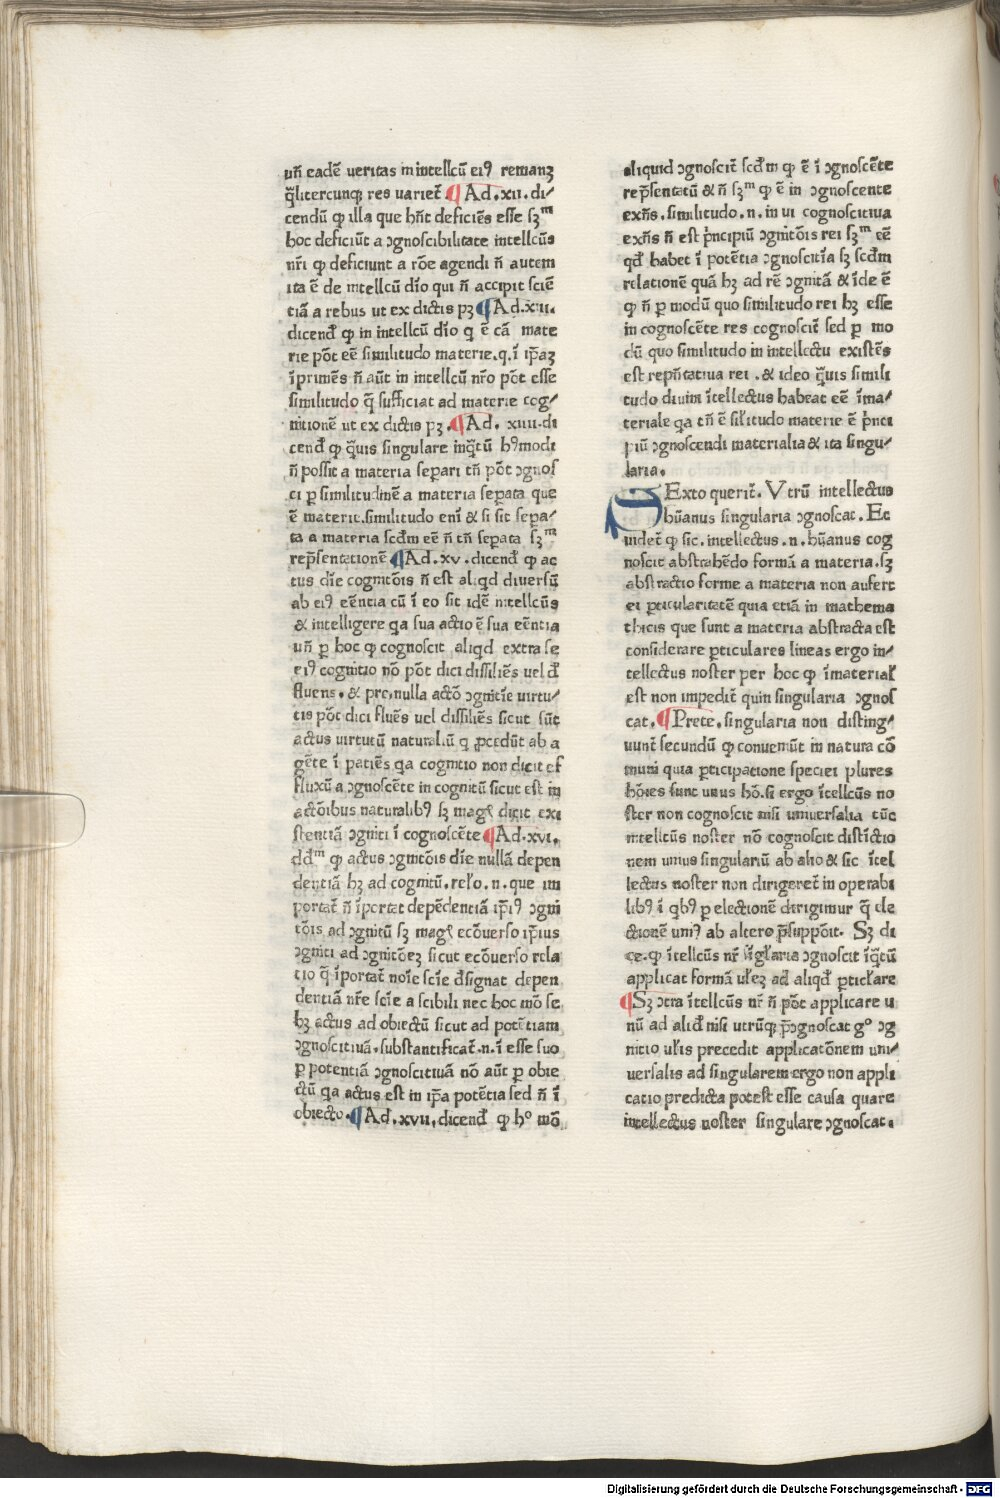 uñ eadē veritas in intellcū eiꝰ remanꝫ
q̃litercunqꝫ res uariet᷑ ¶ Ad.xii.di⸗
cendū ꝙ illa que hñt deficiēs esse sꝫᵐ
hoc deficiūt a ↄgnoscibilitate intellcūs
nr̄i ꝙ deficiunt a rōe agendi ñ autem
ita ē de intellcū dīo qui ñ accipit sciē
tiā a rebus ut ex dictis pꝫ ¶Ad.xiii.
dicend̄ ꝙ in intellcū dīo q ē cā mate
rie pōt eē similitudo materie.q.ī ip̄aꝫ
īprimēs ñ aūt in intellcū nr̄o pōt esse
similitudo q̄ sufficiat ad materie cog⸗
nitionē ut ex dictis pꝫ.¶Ad. xiiii.di
cend̄ ꝙ q̃uis singulare inq̃tū hꝰmodi
ñ possit a materia separi tñ pōt ↄgnos
ci p similitudinē a materia sepata que
ē materie.similitudo enī & si sit sepa⸗
ta a materia scd̄m eē ñ tñ sepata sꝫᵐ
rep̄sentationē ¶Ad.xv.dicend̄ ꝙ ac
tus dīe cognitōis ñ est aliqd diuersū
ab eiꝰ eēntia cū ī eo sit idē intellcūs
& intelligere qa sua actio ē sua eēntia
uñ p hoc ꝙ cognoscit aliqd extra se
eiꝰ cognitio nō pōt dici dissiliēs uel d̄
fluens.& pretnulla actō ↄgnitīe virtu⸗
tis pōt dici fluēs uel dissiliēs sicut sūt
actus virtutū naturaliū q p̱cedūt ab a
gēte ī patiēs qa cognitio non dicit ef
fluxū a ↄgnoscēte in cognitū sicut est in
actōibus naturalibꝰ sꝫ magꝭ dicit exi
stentiā ↄgniti ī cognoscēte ¶Ad.xvi.
dd̄ᵐ ꝙ actus ↄgnitōis dīe nullā depen
dentiā hꝫ ad cognitū.rel̄o.n.que im
portat᷑ ñ īportat depēdentiā ip̄iꝰ ↄgni
tōis ad ↄgnitū sꝫ magꝭ ecōuerso ip̄ius
ↄgniti ad ↄgnitōeꝫ sicut ecōuerso rela
tio q̄ īportat᷑ noīe scīe d̄signat depen
dentiā nr̄e scīe a scibili nec hoc mō se
hꝫ actus ad obiectū sicut ad potētiam
ↄgnoscitiuā.substantificat᷑.n.ī esse suo
p potentiā ↄgnoscitiuā nō aūt p obie
ctū qa actus est in ip̄a potētia sed ñ ī
obiecto.¶Ad.xvii,dicend̄ ꝙ hº mō
aliquid ↄgnoscit᷑ scd̄m ꝙ ē ī ↄgnoscēte
rep̄sentatū & ñ sꝫᵐ ꝙ ē in ↄgnoscente
exñs.similitudo.n.in ui cognoscitiua
exñs ñ est p̄ncipiū ↄgnitōis rei sꝫᵐ eē
qd̄ habet ī potētia ↄgnoscitīa sꝫ scd̄m
relationē quā hꝫ ad rē ↄgnitā & īde ē
ꝙ ñ p modū quo similitudo rei hꝫ esse
in cognoscēte res cognoscit᷑ sed p mo
dū quo similitudo in intellectu existēs
est rep̄ntatiua rei .& ideo q̃uis simili
tudo diuini ītellectus habeat eē īma⸗
teriale qa tñ ē sil̄itudo materie ē p̄nci
piū ↄgnoscendi materialia & ita singu⸗
laria.
SExto querit᷑. Vtrū intellectus
hūanus singularia ↄgnoscat. Et
uidet᷑ ꝙ sic.intellectus.n.hūanus cog
noscit abstrahēdo formā a materia.sꝫ
abstractio forme a materia non aufert
ei p̱ticularitatē quia etiā in mathema
thicis que sunt a materia abstracta est
considerare p̱ticulares lineas ergo in⸗
tellectus noster per hoc ꝙ īmaterial̄
est non impedit᷑ quin singularia ↄgnos
cat.¶Prete.singularia non disting⸗
uunt᷑ secundū ꝙ conueniūt in natura cō
muni quia p̱ticipatione speciei plures
hōies sunt unus hō.si ergo ītellcūs no
ster non cognoscit nisi uniuersalia tūc
intellcūs noster nō cognoscit distīctio
nem unius singulariū ab alio & sic ītel
lectus noster non dirigeret᷑ in operabi
libꝰ ī qbꝰ p electionē dirigimur q̄ ele
ctionē uniꝰ ab altero p̄suppōit. Sꝫ di
ce.ꝙ ītellcūs nr̄ sīgl̄aria ↄgnoscit īq̃tū
applicat formā ul̄eꝫ ad aliqd̄ p̱ticl̄are
¶Sꝫ ↄtra ītellcūs nr̄ ñ pōt applicare u
nū ad alid̄ nisi utrūqꝫ p̄ↄgnoscat gº ↄg
nitio ul̄is precedit applicatōnem uni⸗
uersalis ad singularem ergo non appli
catio predicta potest esse causa quare
intellectus noster singulare ↄgnoscat.
Digitalisierung gefördert durch die Deutsche Forschungsgemeinschaft - DFG